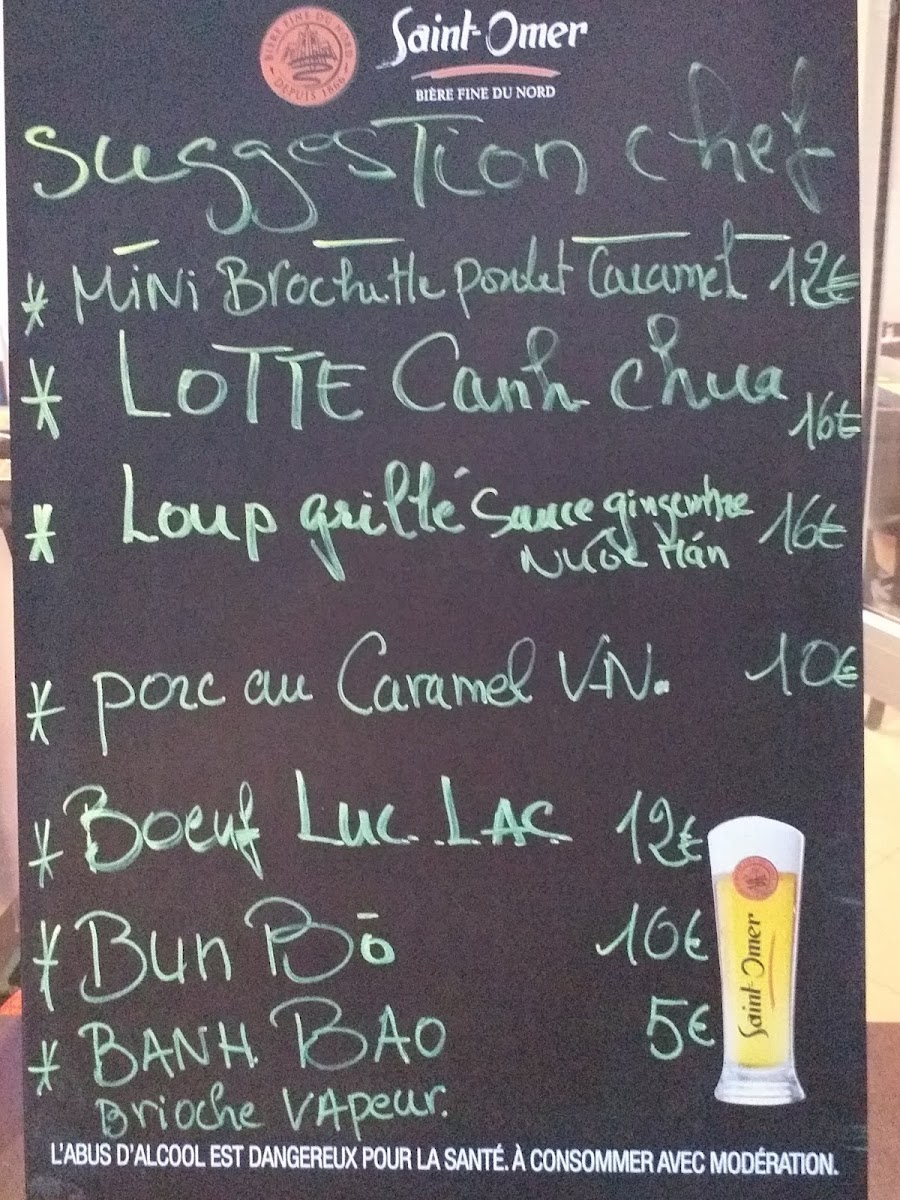 BIÈRE FINE DU NORD
DEPUIS 1866
Saint-Omer
BIÈRE FINE DU NORD
Suggestion chef
* MiNi Brochette poulet Caramel 12€
* LOTTE Canh chua 16€
* Loup grillé Sauce gingembre 16€
Nước Mán
* porc au Caramel V.N. 10€
* Boeuf Luc. LAC 12€
* Bun Bo 10€
* BANH. BAO 5€
Brioche VApeur.
Saint-Omer
L'ABUS D'ALCOOL EST DANGEREUX POUR LA SANTÉ. À CONSOMMER AVEC MODÉRATION.